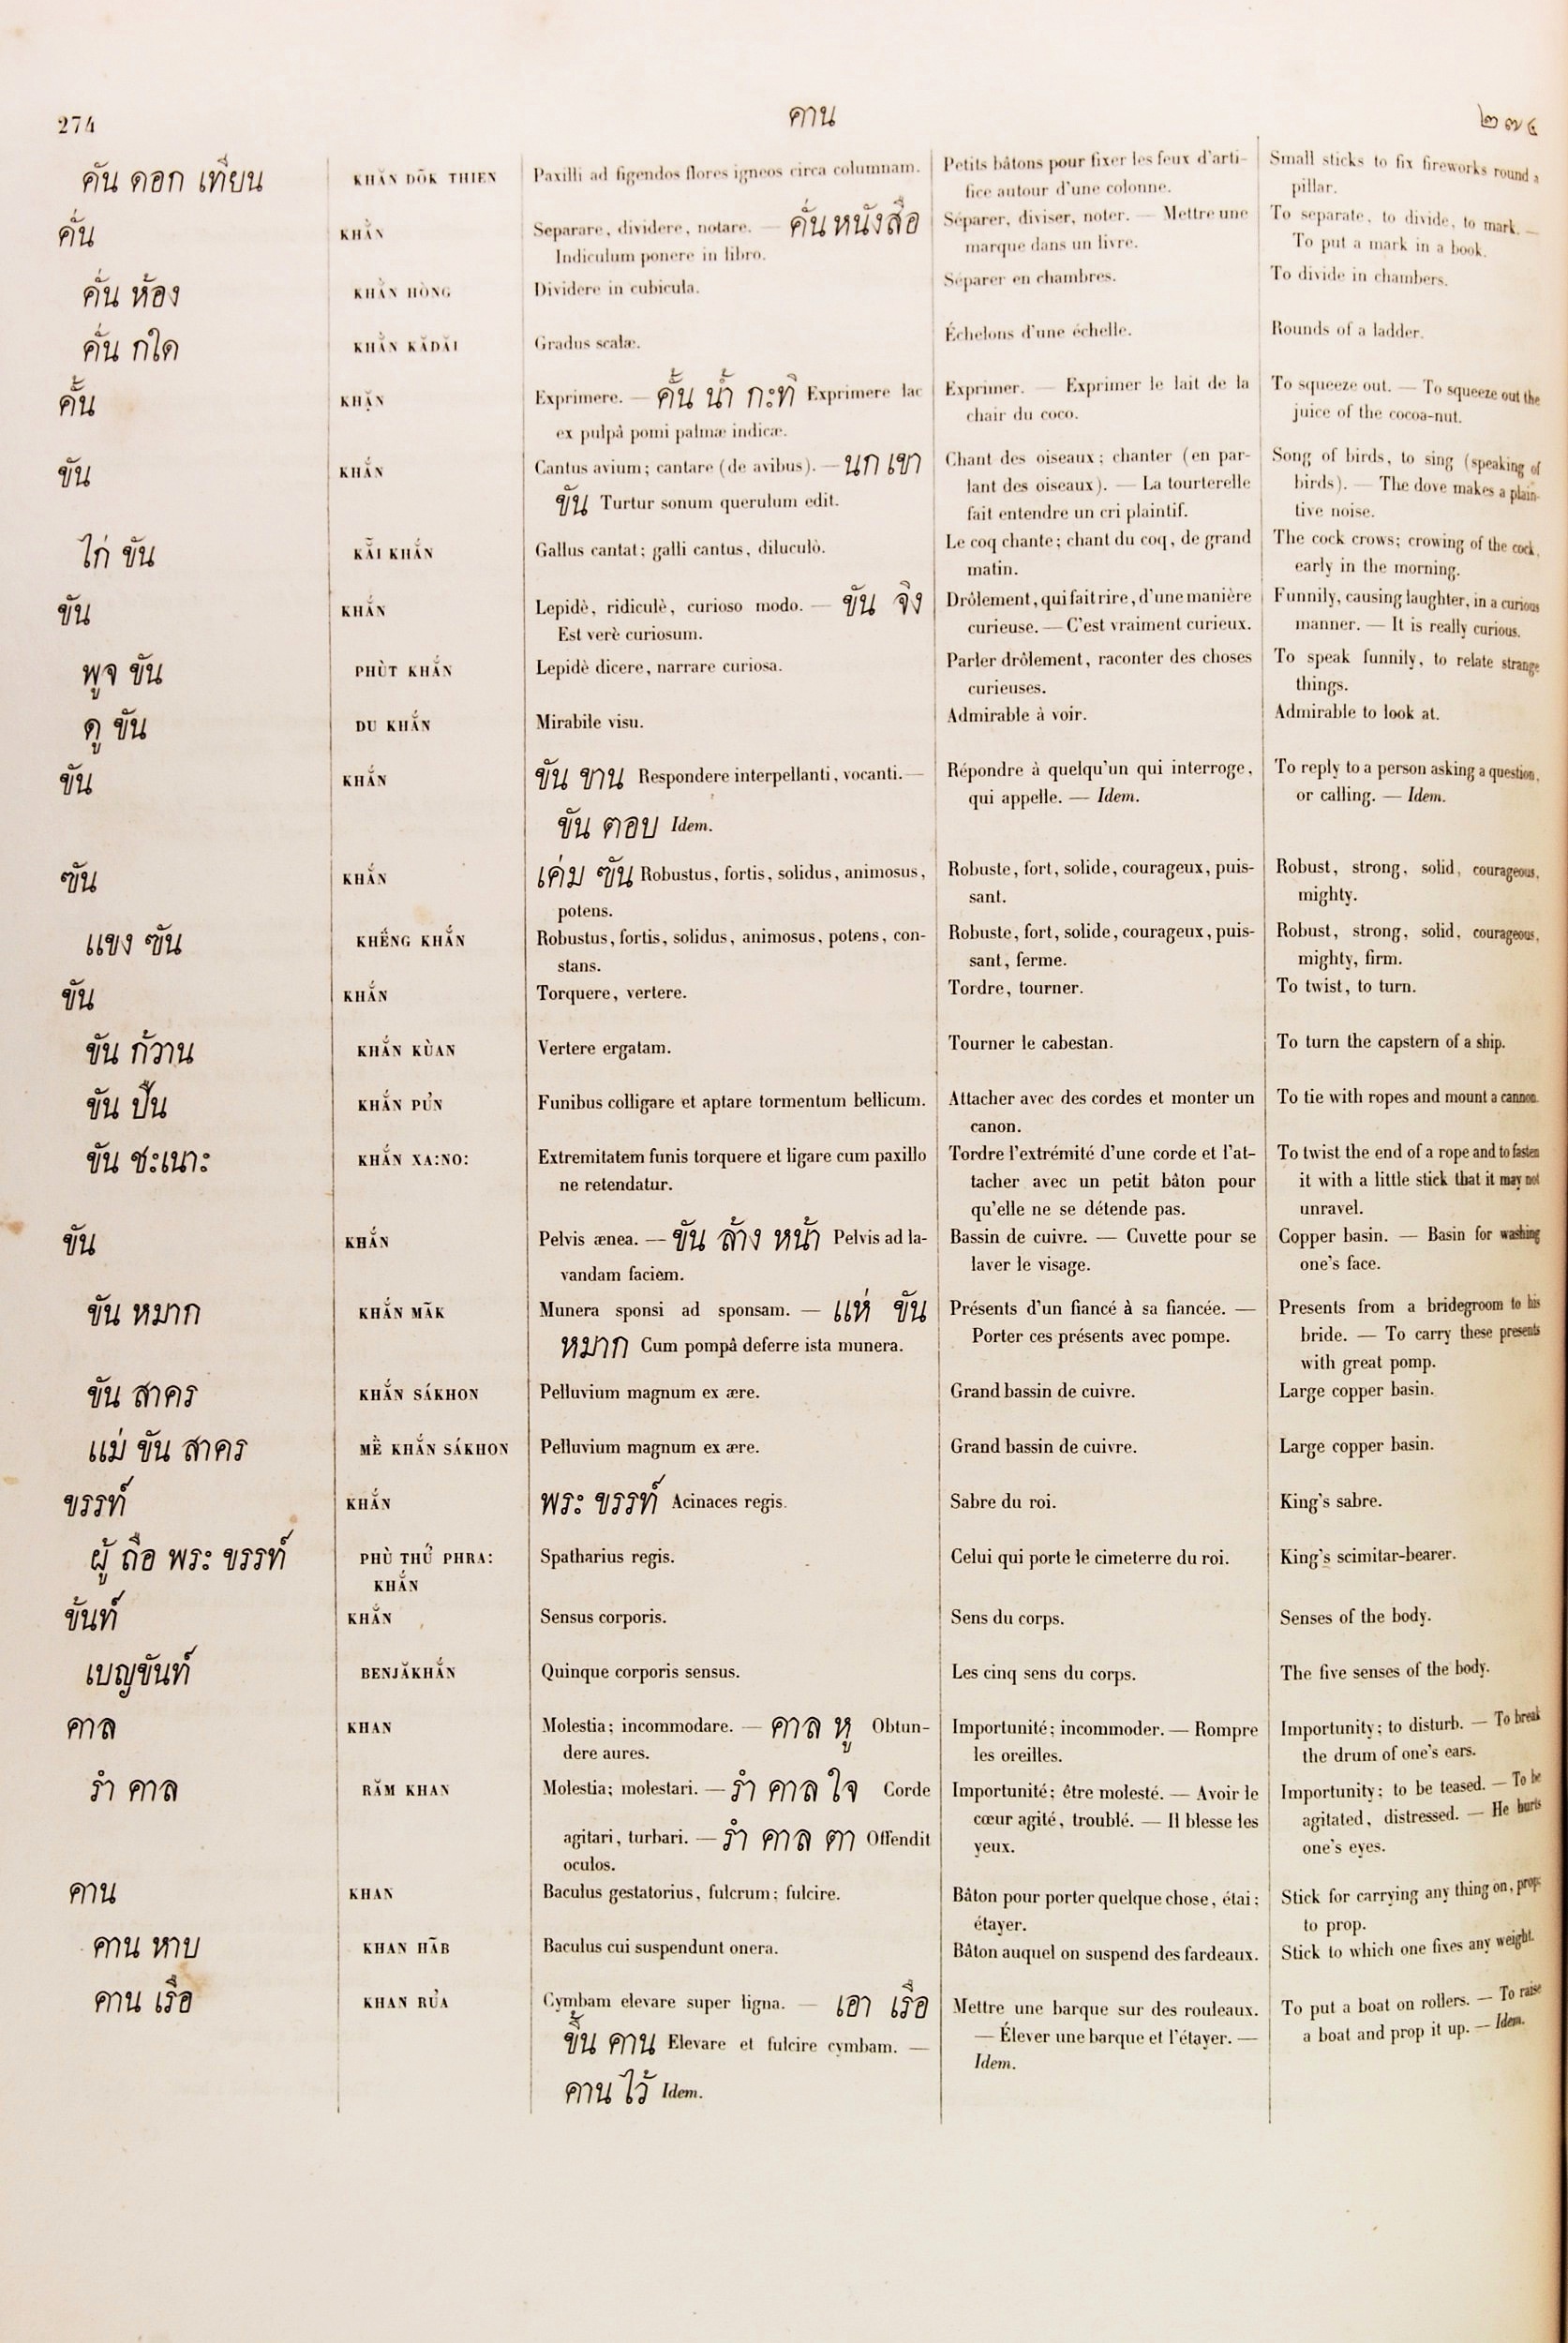 274
คาน
๒๗๔
คัน ดอก เทียน KHĂN DŌK THIEN Paxilli ad figendos flores igneos circa columnam. Petits bâtons pour fixer les feux d'arti- Small sticks to fix fireworks round a
fice autour d'une colonne. pillar.
คั่น KHẰN Separare, dividere, notare. — คั่น หนังสือ Séparer, diviser, noter. — Mettre une To separate, to divide, to mark. —
Indiculum ponere in libro. marque dans un livre. To put a mark in a book.
คั่น ห้อง KHẰN HÒNG Dividere in cubicula. Séparer en chambres. To divide in chambers.
คั่น กใด KHẰN KĂDĂI Gradus scalæ. Échelons d'une échelle. Rounds of a ladder.
คั้น KHẶN Exprimere. — คั้น น้ำ กะทิ Exprimere lac Exprimer. — Exprimer le lait de la To squeeze out. — To squeeze out the
ex pulpâ pomi palmæ indicæ. chair du coco. juice of the cocoa-nut.
ขัน KHẮN Cantus avium; cantare (de avibus). — นก เขา Chant des oiseaux; chanter (en par- Song of birds, to sing (speaking of
ขัน Turtur sonum querulum edit. lant des oiseaux). — La tourterelle birds). — The dove makes a plain-
fait entendre un cri plaintif. tive noise.
ไก่ ขัน KẴI KHẮN Gallus cantat; galli cantus, diluculò. Le coq chante; chant du coq, de grand The cock crows; crowing of the cock,
matin. early in the morning.
ขัน KHẮN Lepidè, ridiculè, curioso modo. — ขัน จิง Drôlement, qui fait rire, d'une manière Funnily, causing laughter, in a curious
Est verè curiosum. curieuse. — C'est vraiment curieux. manner. — It is really curious.
พูจ ขัน PHÙT KHẮN Lepidè dicere, narrare curiosa. Parler drôlement, raconter des choses To speak funnily, to relate strange
curieuses. things.
ดู ขัน DU KHẮN Mirabile visu. Admirable à voir. Admirable to look at.
ขัน KHẮN ขัน ขาน Respondere interpellanti, vocanti. — Répondre à quelqu'un qui interroge, To reply to a person asking a question,
ขัน ตอบ Idem. qui appelle. — Idem. or calling. — Idem.
ฃัน KHẮN เค่ม ฃัน Robustus, fortis, solidus, animosus, Robuste, fort, solide, courageux, puis- Robust, strong, solid, courageous,
potens. sant. mighty.
แขง ฃัน KHẾNG KHẮN Robustus, fortis, solidus, animosus, potens, con- Robuste, fort, solide, courageux, puis- Robust, strong, solid, courageous,
stans. sant, ferme. mighty, firm.
ขัน KHẮN Torquere, vertere. Tordre, tourner. To twist, to turn.
ขัน ก้วาน KHẮN KÙAN Vertere ergatam. Tourner le cabestan. To turn the capstern of a ship.
ขัน ปืน KHẮN PỦN Funibus colligare et aptare tormentum bellicum. Attacher avec des cordes et monter un To tie with ropes and mount a cannon.
canon.
ขัน ชะเนาะ KHẮN XA:NO: Extremitatem funis torquere et ligare cum paxillo Tordre l'extrémité d'une corde et l'at- To twist the end of a rope and to fasten
ne retendatur. tacher avec un petit bâton pour it with a little stick that it may not
qu'elle ne se détende pas. unravel.
ขัน KHẮN Pelvis ænea. — ขัน ล้าง หน้า Pelvis ad la- Bassin de cuivre. — Cuvette pour se Copper basin. — Basin for washing
vandam faciem. laver le visage. one's face.
ขัน หมาก KHẮN MÃK Munera sponsi ad sponsam. — แห่ ขัน Présents d'un fiancé à sa fiancée. — Presents from a bridegroom to his
หมาก Cum pompâ deferre ista munera. Porter ces présents avec pompe. bride. — To carry these presents
with great pomp.
ขัน สาคร KHẮN SÁKHON Pelluvium magnum ex ære. Grand bassin de cuivre. Large copper basin.
แม่ ขัน สาคร MÈ̂ KHẮN SÁKHON Pelluvium magnum ex ære. Grand bassin de cuivre. Large copper basin.
ขรรท์ KHẮN พระ ขรรท์ Acinaces regis. Sabre du roi. King's sabre.
ผู้ ถือ พระ ขรรท์ PHÙ THỨ PHRA: Spatharius regis. Celui qui porte le cimeterre du roi. King's scimitar-bearer.
KHẮN
ขันท์ KHẮN Sensus corporis. Sens du corps. Senses of the body.
เบญขันท์ BENJĂKHẮN Quinque corporis sensus. Les cinq sens du corps. The five senses of the body.
คาล KHAN Molestia; incommodare. — คาล หู Obtun- Importunité; incommoder. — Rompre Importunity; to disturb. — To break
dere aures. les oreilles. the drum of one's ears.
รำ คาล RĂM KHAN Molestia; molestari. — รำ คาล ใจ Corde Importunité; être molesté. — Avoir le Importunity; to be teased. — To be
agitari, turbari. — รำ คาล ตา Offendit cœur agité, troublé. — Il blesse les agitated, distressed. — He hurts
oculos. yeux. one's eyes.
คาน KHAN Baculus gestatorius, fulcrum; fulcire. Bâton pour porter quelque chose, étai; Stick for carrying any thing on, prop;
étayer. to prop.
คาน หาบ KHAN HÃB Baculus cui suspendunt onera. Bâton auquel on suspend des fardeaux. Stick to which one fixes any weight.
คาน เรือ KHAN RỦA Cymbam elevare super ligna. — เอา เรือ Mettre une barque sur des rouleaux. To put a boat on rollers. — To raise
ขึ้น คาน Elevare et fulcire cymbam. — — Élever une barque et l'étayer. — a boat and prop it up. — Idem.
คาน ไว้ Idem. Idem.